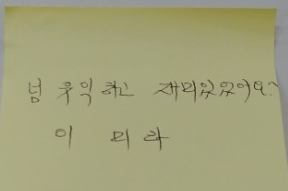 넘 유익하고 재미있었어요~
이 미 라